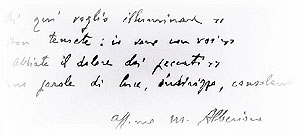 Di qui' voglio illuminare »
Non temete : io sono con voi »
Abbiate il dolore dei peccati »
parole di luce, indirizzo,
aff.mo M. Alberione